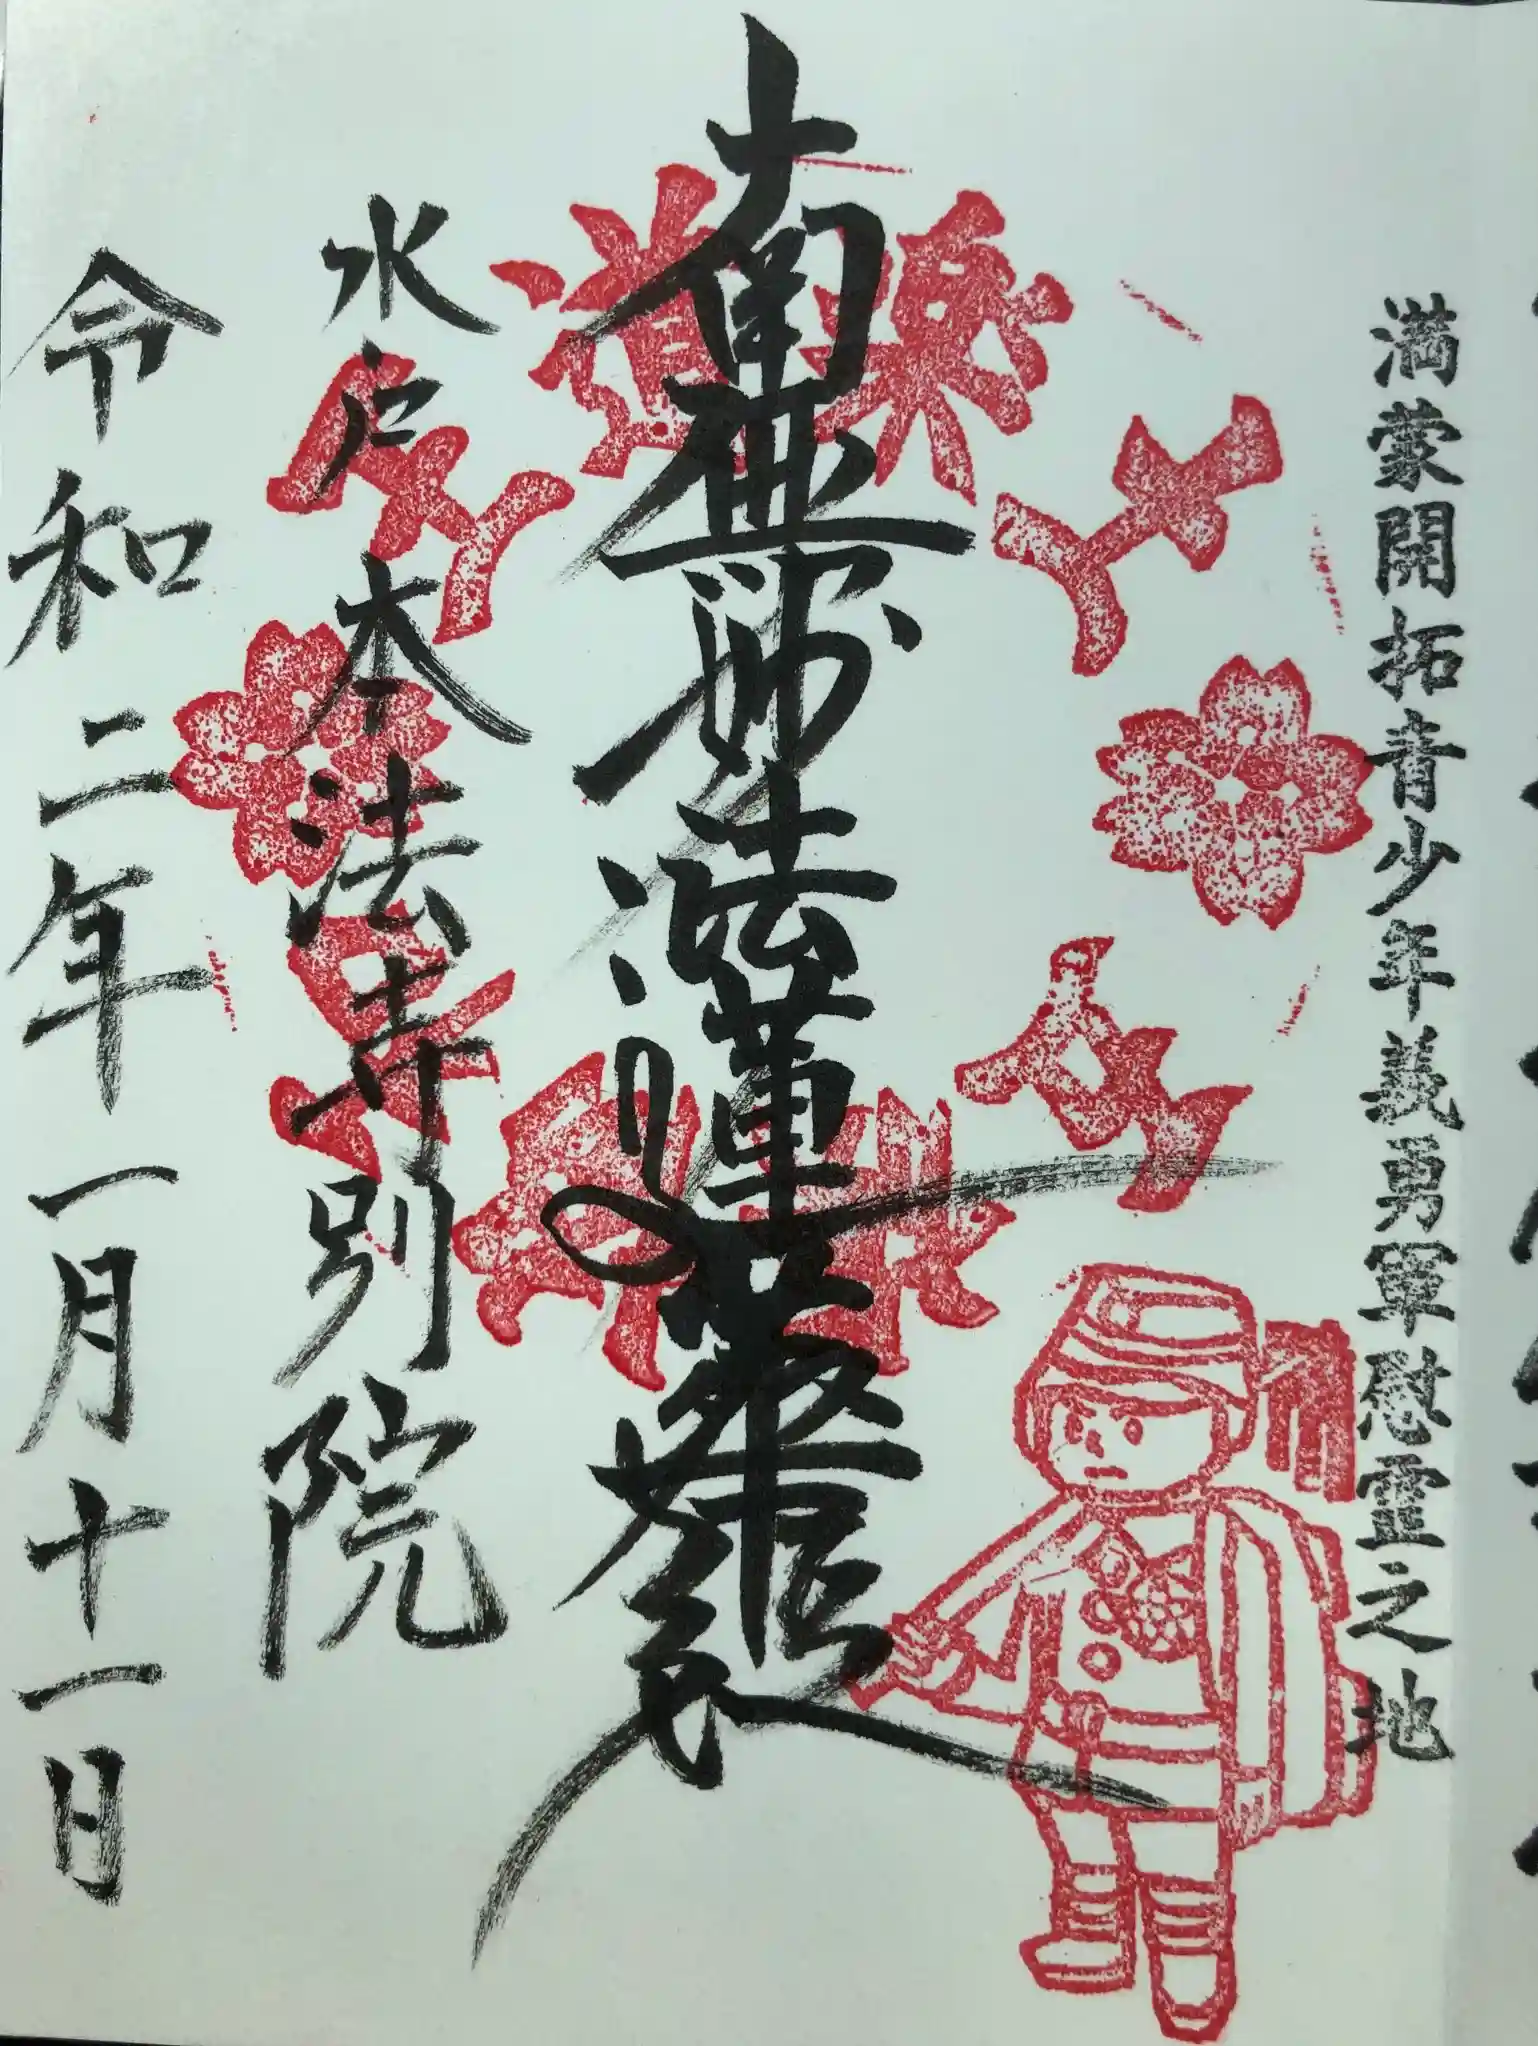 満蒙開拓青少年義勇軍慰霊之地
南無妙法蓮華経
王道楽土
五族協和
水戸本法寺別院
令和二年一月十一日